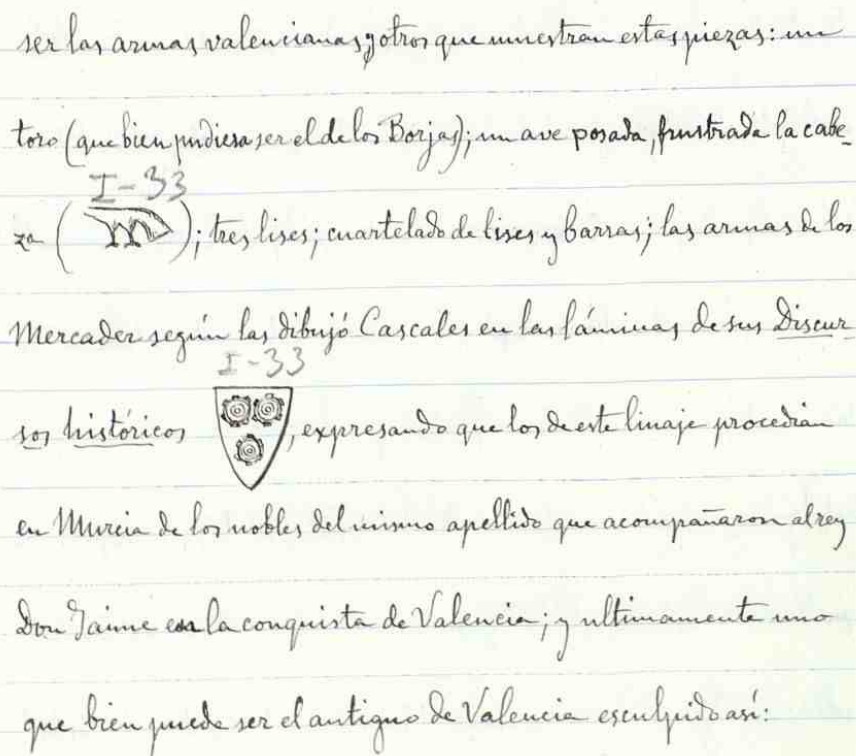 ser las armas valencianas y otros que muestran estas piezas: un
toro (que bien pudiera ser el de los Borjas); un ave posada, frustrada la cabe-
I-33
za ( ); tres lises; cuartelado de lises y barras; las armas de los
Mercader según las dibujó Cascales en las láminas de sus Discur
I-33
sos históricos , expresando que los de este linaje procedían
en Murcia de los nobles del mismo apellido que acompañaron al rey
Don Jaime en la conquista de Valencia; y ultimamente uno
que bien puede ser el antiguo de Valencia esculpido así: